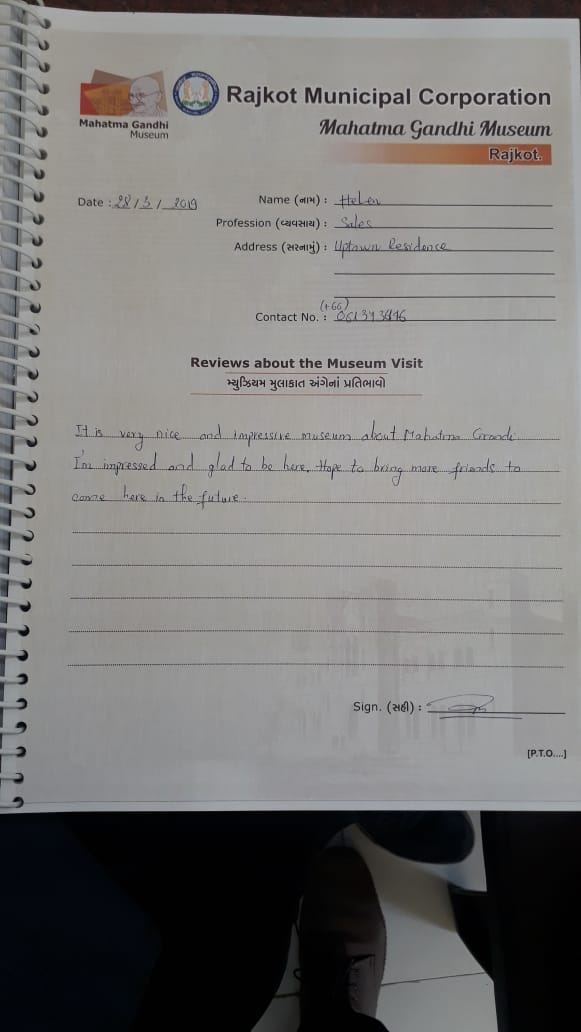 Mahatma Gandhi
Museum
Rajkot Municipal Corporation
Mahatma Gandhi Museum
Rajkot.
Date : 28 / 3 / 2019
Name (નામ) : Helen
Profession (વ્યવસાય) : Sales
Address (સરનામું) : Uptown Residence
(+66)
Contact No. :
Reviews about the Museum Visit
મ્યુઝિયમ મુલાકાત અંગેનાં પ્રતિભાવો
It is very nice and impressive museum about Mahatma Grandi.
I'm impressed and glad to be here. Hope to bring more friends to
come here in the future.
Sign. (સહી) :
[P.T.O....]